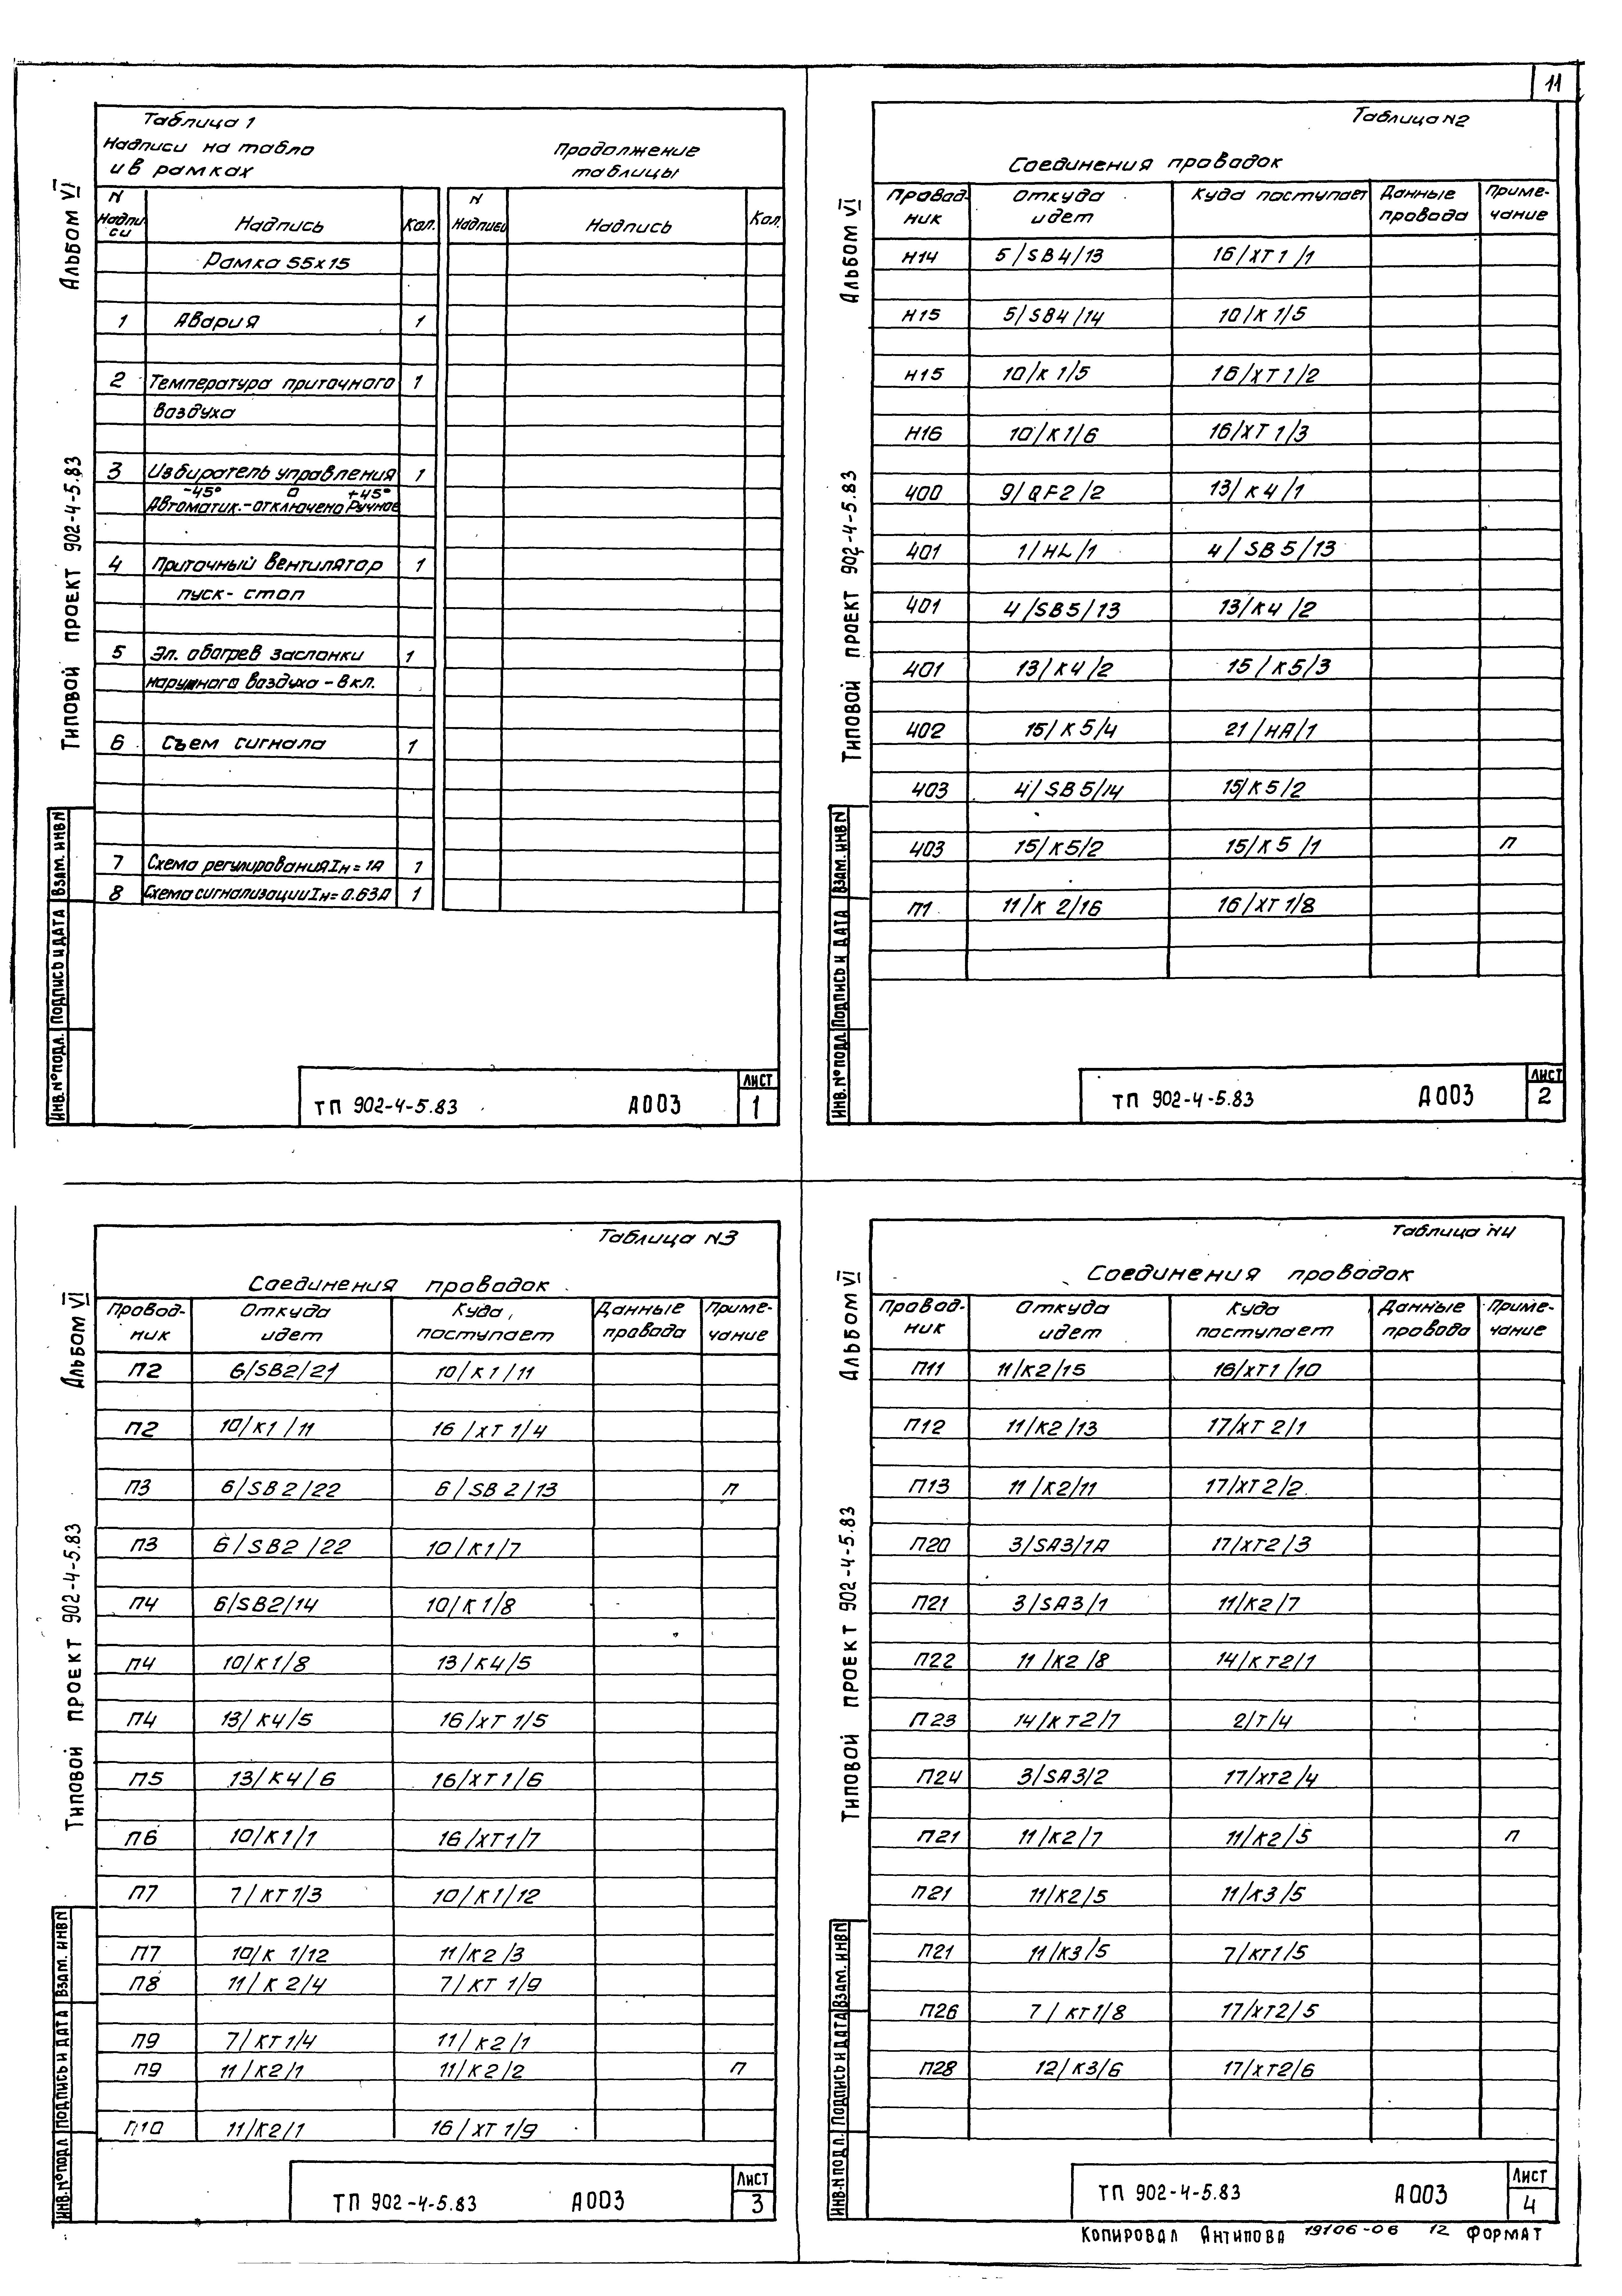 11
Альбом VI
Типовой проект 902-4-5.83
Таблица 1
Надписи на табло
и в рамках
Продолжение
таблицы
N Надписи | Надпись | Кол. | N Надписи | Надпись | Кол.
Рамка 55х15
1 Авария 1
2 Температура приточного 1
воздуха
3 Избиратель управления 1
-45° 0 +45°
Автоматик.-отключено Ручное
4 Приточный вентилятор 1
пуск-стоп
5 Эл. обогрев заслонки 1
наружного воздуха-вкл.
6 Съем сигнала 1
7 Схема регулирования Iн=1А 1
8 Схема сигнализации Iн=0.63А 1
Инв.№подл. Подпись и дата Взам. инв N
ТП 902-4-5.83 А003
Лист
1
Альбом VI
Типовой проект 902-4-5.83
Таблица N2
Соединения проводок
Проводник | Откуда идет | Куда поступает | Данные провода | Примечание
Н14 5/SB4/13 16/ХТ1/1
Н15 5/SB4/14 10/К1/5
Н15 10/К1/5 16/ХТ1/2
Н16 10/К1/6 16/ХТ1/3
400 9/QF2/2 13/К4/1
401 1/HL/1 4/SB5/13
401 4/SB5/13 13/К4/2
401 13/К4/2 15/К5/3
402 15/К5/4 21/НА/1
403 4/SB5/14 15/К5/2
403 15/К5/2 15/К5/1 П
П1 11/К2/16 16/ХТ1/8
Инв.№подл. Подпись и дата Взам. инв N
ТП 902-4-5.83 А003
Лист
2
Альбом VI
Типовой проект 902-4-5.83
Таблица N3
Соединения проводок
Проводник | Откуда идет | Куда поступает | Данные провода | Примечание
П2 6/SB2/21 10/К1/11
П2 10/К1/11 16/ХТ1/4
П3 6/SB2/22 6/SB2/13 П
П3 6/SB2/22 10/К1/7
П4 6/SB2/14 10/К1/8
П4 10/К1/8 13/К4/5
П4 13/К4/5 16/ХТ1/5
П5 13/К4/6 16/ХТ1/6
П6 10/К1/1 16/ХТ1/7
П7 7/КТ1/3 10/К1/12
П7 10/К1/12 11/К2/3
П8 11/К2/4 7/КТ1/9
П9 7/КТ1/4 11/К2/1
П9 11/К2/1 11/К2/2 П
П10 11/К2/1 16/ХТ1/9
Инв.№подл Подпись и дата Взам. инв N
ТП 902-4-5.83 А003
Лист
3
Альбом VI
Типовой проект 902-4-5.83
Таблица N4
Соединения проводок
Проводник | Откуда идет | Куда поступает | Данные провода | Примечание
П11 11/К2/15 16/ХТ1/10
П12 11/К2/13 17/ХТ2/1
П13 11/К2/11 17/ХТ2/2
П20 3/SA3/1А 17/ХТ2/3
П21 3/SA3/1 11/К2/7
П22 11/К2/8 14/КТ2/1
П23 14/КТ2/7 2/Т/4
П24 3/SA3/2 17/ХТ2/4
П21 11/К2/7 11/К2/5 П
П21 11/К2/5 11/К3/5
П21 11/К3/5 7/КТ1/5
П26 7/КТ1/8 17/ХТ2/5
П28 12/К3/6 17/ХТ2/6
Инв.Nподл. Подпись и дата Взам. инв N
ТП 902-4-5.83 А003
Лист
4
Копировал Антипова 19106-06 12 Формат